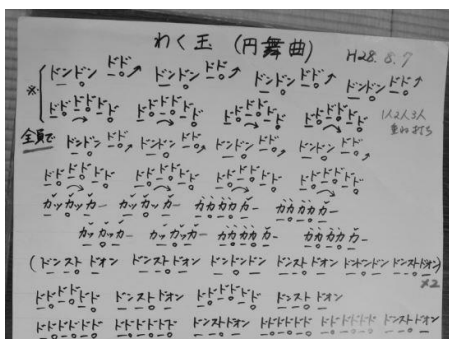 わく玉 (円舞曲) H28.8.7
※ ドンドン ドド ドンドン ドド ドンドン ドド ドンドン ドド
ドドドドドド ドドドドドド ドドドドドド ドドドドドド 1人2人3人
重ね打ち
全員で ドンドン ドド ドンドン ドド ドンドン ドド ドンドン ドド
ドドドドドド ドドドドドド ドドドドドド ドドドドドド
カッカッカー カッカッカー カカカカカー カカカカカー
カッカッカー カッカッカー カカカカカー カカカカカー
(ドンスト ドオン ドンスト ドオン ドンドンドン ドンスト ドオン ドンドンドン ドンストドオン)
×2
ドドドドドド ドンストドオン ドドドドドド ドンスト ドオン
ドドドドドド ドドドドドド ドンストドオン ドドドドドド ドドドドドド ドンストドオン